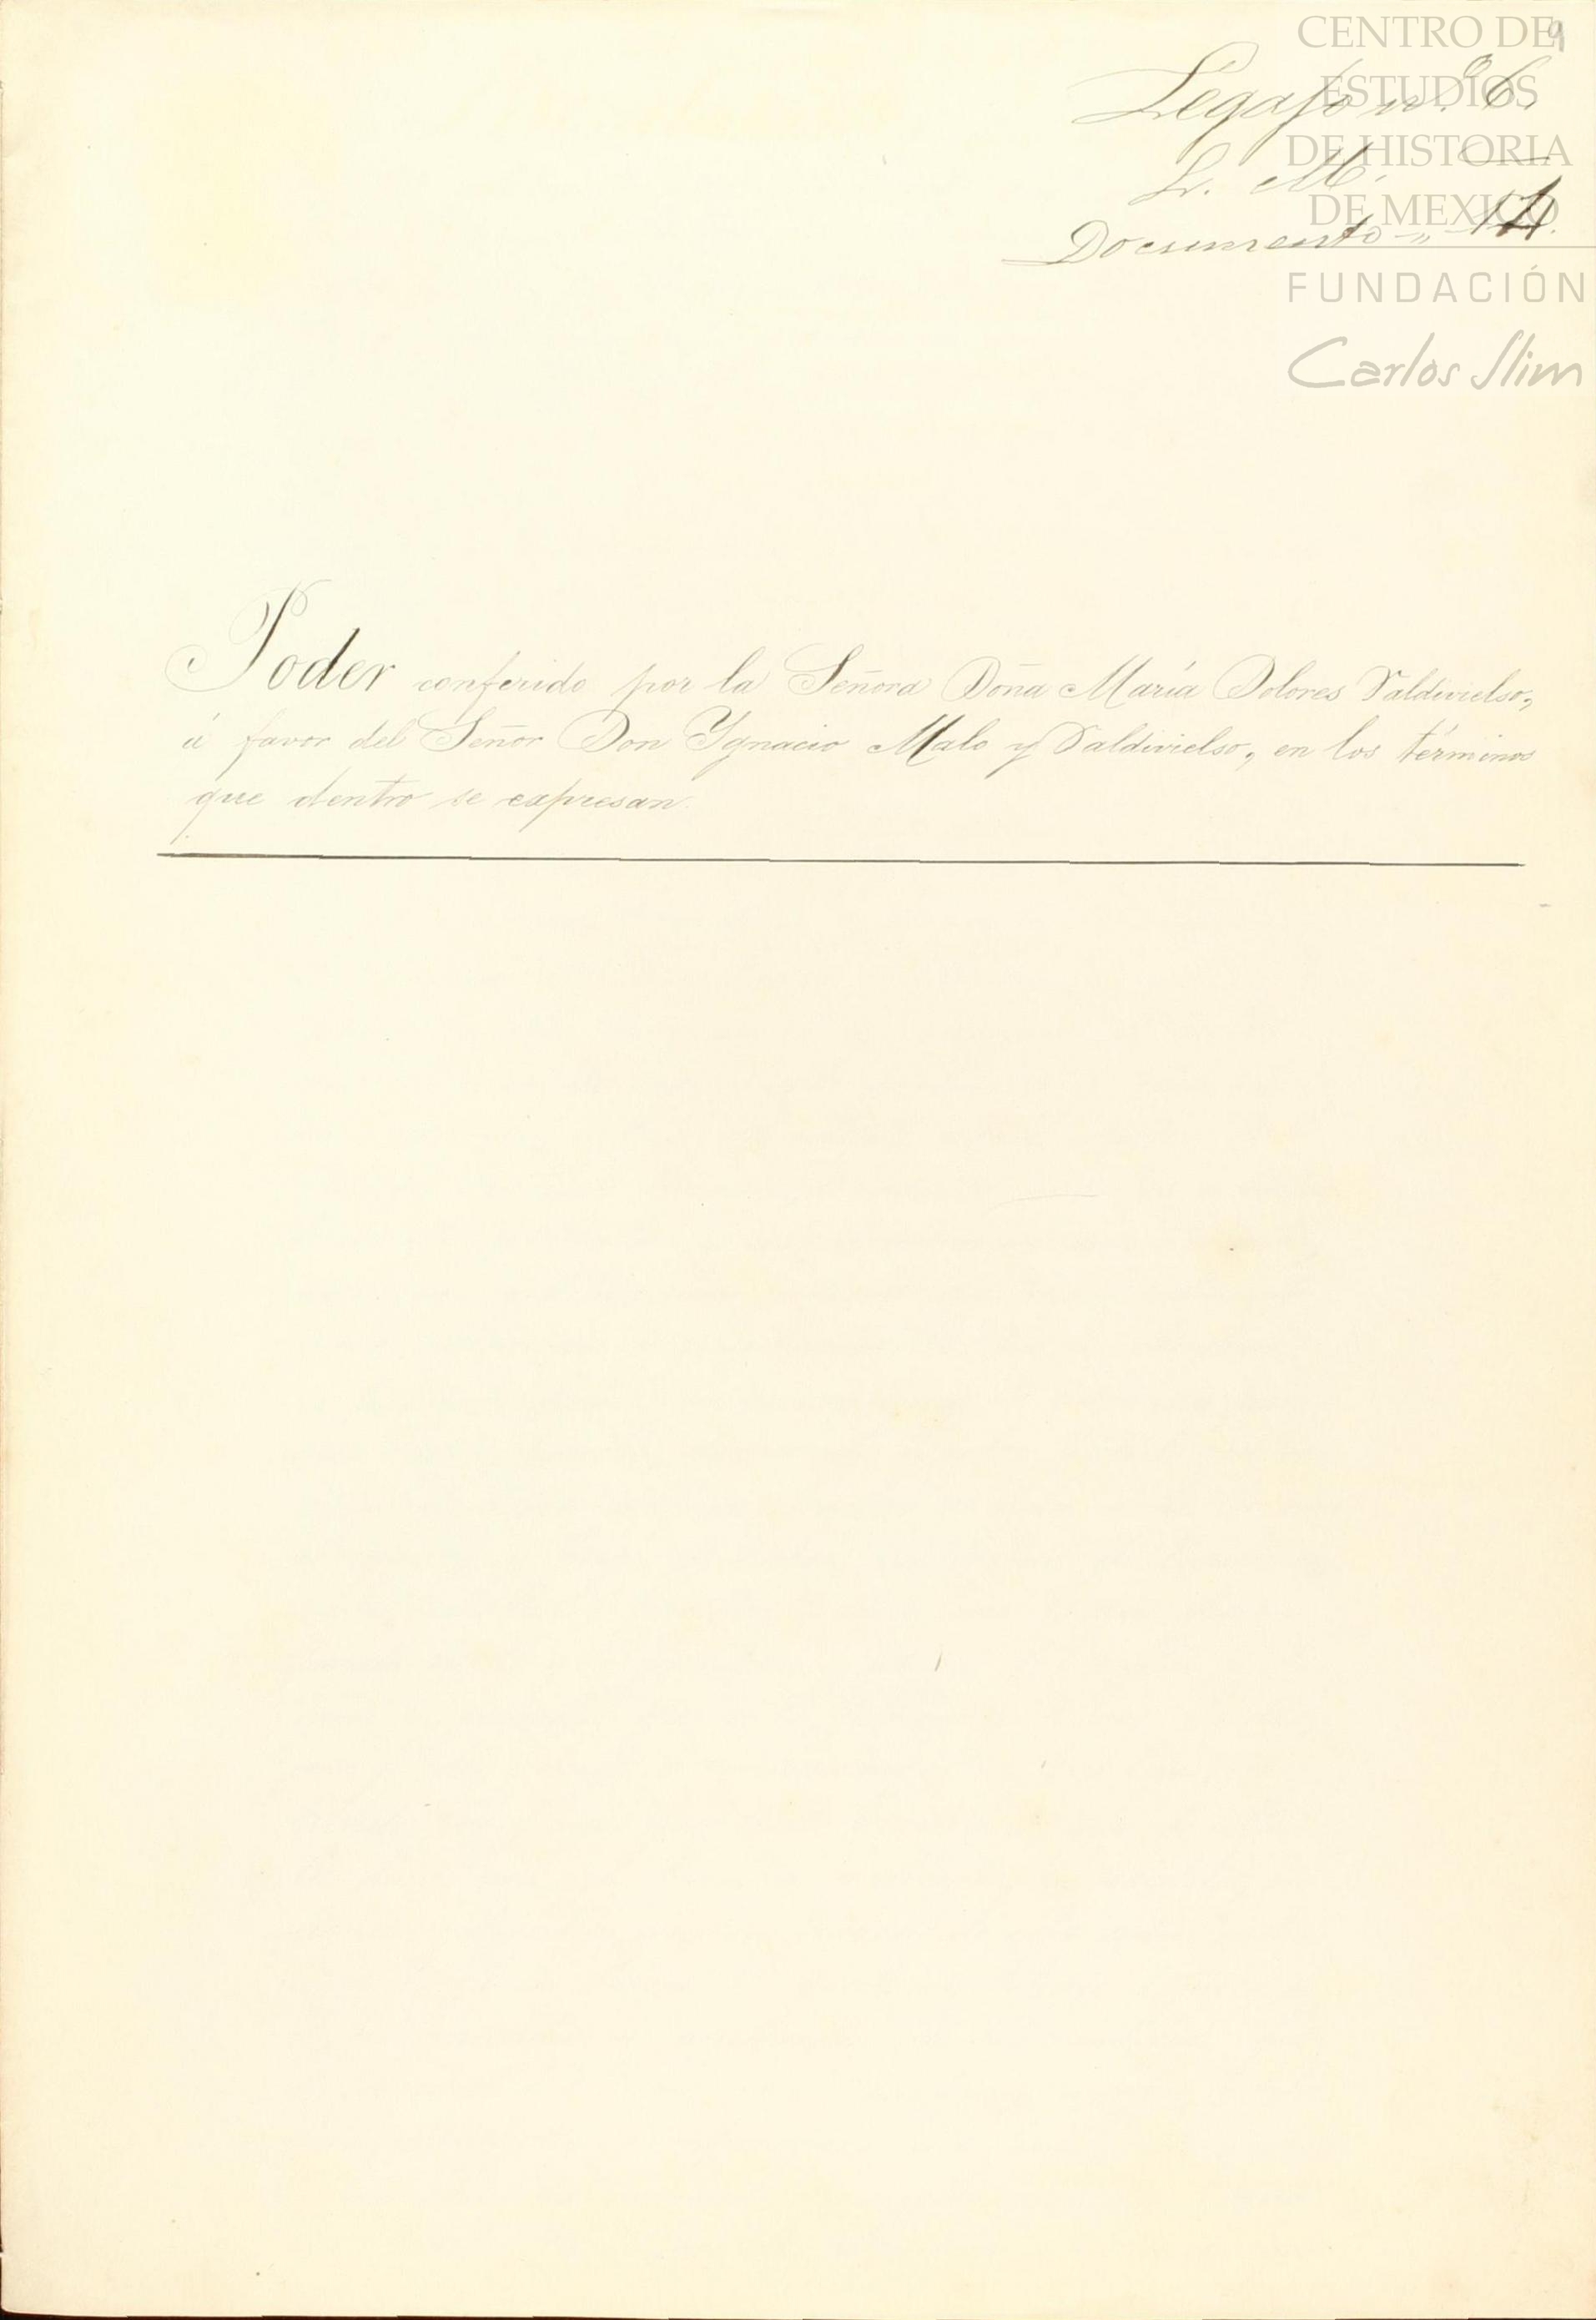 CENTRO DE
ESTUDIOS
DE HISTORIA
DE MEXICO
FUNDACIÓN
Carlos Slim
9
Legajo n.º 6.
L. M.
Documento " 14.
Poder conferido por la Señora Doña María Dolores Valdivielso,
á favor del Señor Don Ygnacio Malo y Valdivielso, en los términos
que dentro se expresan.